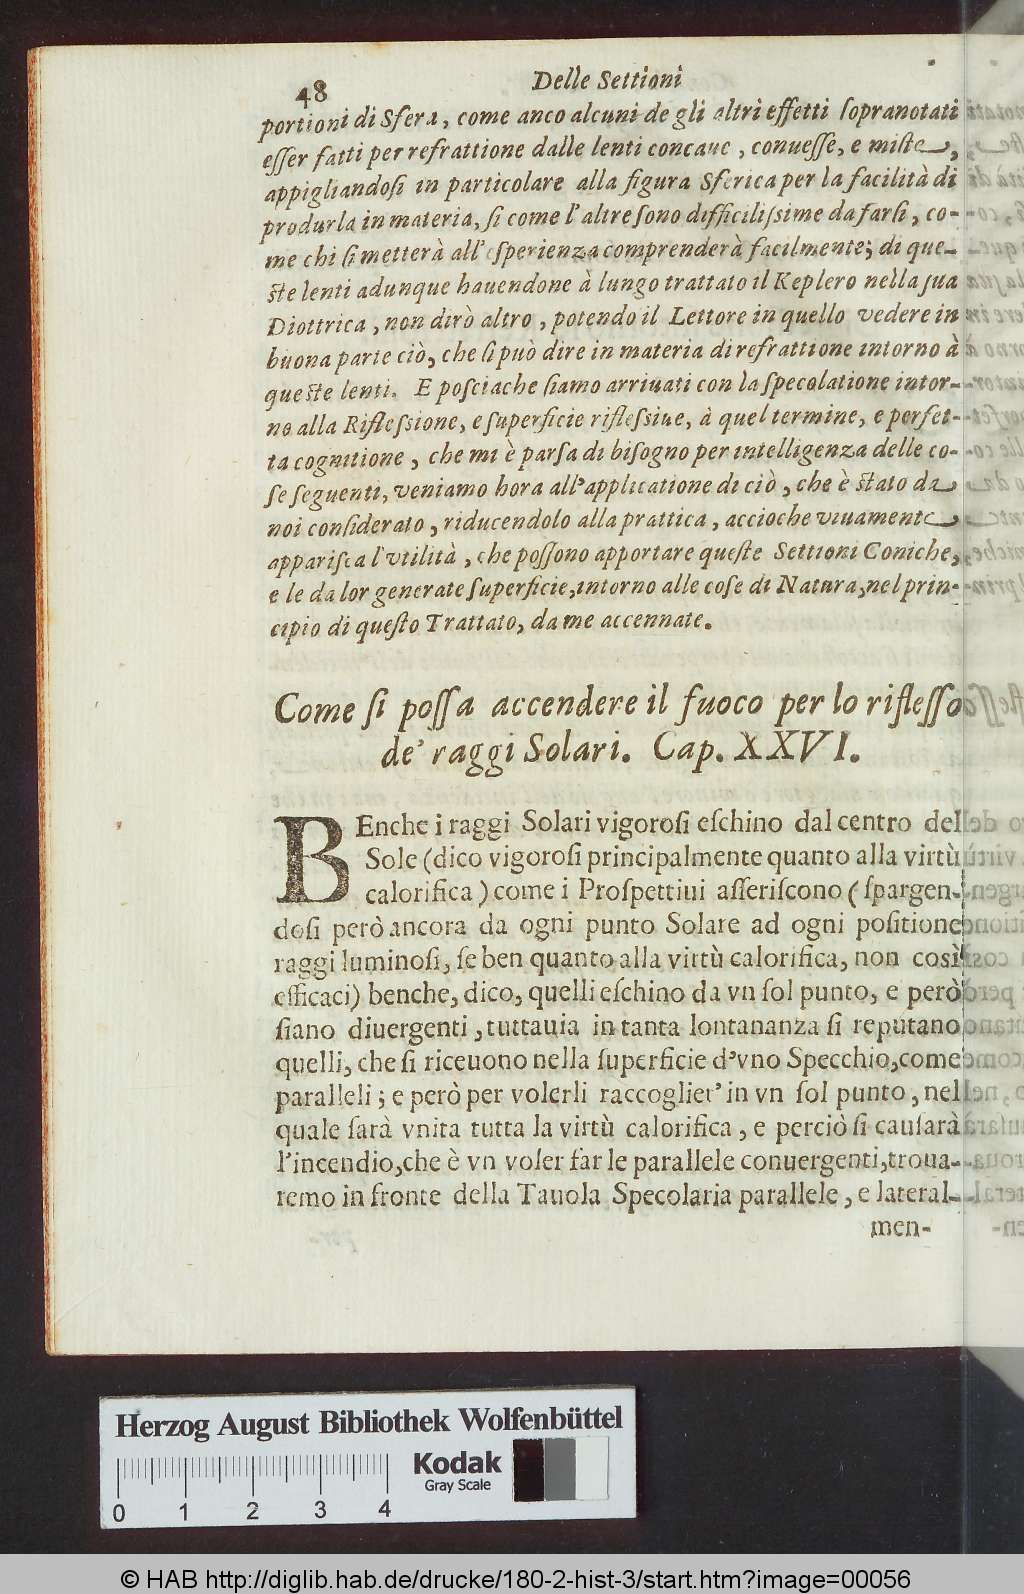 48 Delle Settioni
portioni di Sfera, come anco alcuni de gli altri effetti ſopranotati
eſſer fatti per refrattione dalle lenti concaue, conueſſe, e miſte,
appigliandoſi in particolare alla figura Sferica per la facilità di
produrla in materia, ſi come l'altre ſono difficiliſsime da farſi, co-
me chi ſi metterà all'eſperienza comprenderà facilmente; di que-
ſte lenti adunque hauendone à lungo trattato il Keplero nella ſua
Diottrica, non dirò altro, potendo il Lettore in quello vedere in
buona parte ciò, che ſi può dire in materia di refrattione intorno à
queſte lenti. E poſciache ſiamo arriuati con la ſpecolatione intor-
no alla Rifleſsione, e ſuperficie rifleſsiue, à quel termine, e perfet-
ta cognitione, che mi è parſa di biſogno per intelligenza delle co-
ſe ſeguenti, veniamo hora all'applicatione di ciò, che è ſtato da
noi conſiderato, riducendolo alla prattica, accioche viuamente
appariſca l'vtilità, che poſſono apportare queſte Settioni Coniche,
e le da lor generate ſuperficie, intorno alle coſe di Natura, nel prin-
cipio di queſto Trattato, da me accennate.
Come ſi poſſa accendere il fuoco per lo rifleſſo
de' raggi Solari. Cap. XXVI.
BEnche i raggi Solari vigoroſi eſchino dal centro del
Sole (dico vigoroſi principalmente quanto alla virtù
calorifica) come i Proſpettiui aſſeriſcono (ſpargen-
doſi però ancora da ogni punto Solare ad ogni poſitione
raggi luminoſi, ſe ben quanto alla virtù calorifica, non così
efficaci) benche, dico, quelli eſchino da vn ſol punto, e però
ſiano diuergenti, tuttauia in tanta lontananza ſi reputano
quelli, che ſi riceuono nella ſuperficie d'vno Specchio, come
paralleli; e però per volerli raccoglier' in vn ſol punto, nel
quale ſarà vnita tutta la virtù calorifica, e perciò ſi cauſarà
l'incendio, che è vn voler far le parallele conuergenti, troua-
remo in fronte della Tauola Specolaria parallele, e lateral-
men-
Herzog August Bibliothek Wolfenbüttel
Kodak
Gray Scale
0 1 2 3 4
© HAB http://diglib.hab.de/drucke/180-2-hist-3/start.htm?image=00056